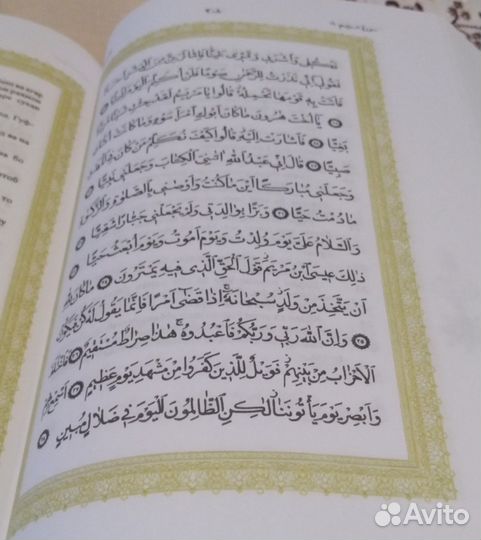 ٣٠٨
سورة مريم
فَكُلِى وَاشْرَبِى وَقَرِّى عَيْنًا فَاِمَّا تَرَيِنَّ مِنَ الْبَشَرِ
فَقُولِى اِنِّى نَذَرْتُ لِلرَّحْمٰنِ صَوْمًا فَلَنْ اُكَلِّمَ الْيَوْمَ اِنْسِيًّا
فَاَتَتْ بِهِ قَوْمَهَا تَحْمِلُهُ قَالُوا يَا مَرْيَمُ لَقَدْ جِئْتِ شَيْئًا
يَا اُخْتَ هٰرُونَ مَا كَانَ اَبُوكِ امْرَاَ سَوْءٍ وَمَا كَانَتْ اُمُّكِ
بَغِيًّا فَاَشَارَتْ اِلَيْهِ قَالُوا كَيْفَ نُكَلِّمُ مَنْ كَانَ فِى الْمَهْدِ
صَبِيًّا قَالَ اِنِّى عَبْدُ اللّٰهِ اٰتٰنِىَ الْكِتَابَ وَجَعَلَنِى نَبِيًّا
وَجَعَلَنِى مُبَارَكًا اَيْنَ مَا كُنْتُ وَاَوْصَانِى بِالصَّلٰوةِ وَالزَّكٰوةِ
مَا دُمْتُ حَيًّا وَبَرًّا بِوَالِدَتِى وَلَمْ يَجْعَلْنِى جَبَّارًا شَقِيًّا
وَالسَّلَامُ عَلَىَّ يَوْمَ وُلِدْتُ وَيَوْمَ اَمُوتُ وَيَوْمَ اُبْعَثُ حَيًّا
ذٰلِكَ عِيسَى ابْنُ مَرْيَمَ قَوْلَ الْحَقِّ الَّذِى فِيهِ يَمْتَرُونَ مَا كَانَ لِلّٰهِ
اَنْ يَتَّخِذَ مِنْ وَلَدٍ سُبْحَانَهُ اِذَا قَضٰى اَمْرًا فَاِنَّمَا يَقُولُ لَهُ كُنْ فَيَكُونُ
٣٥ وَاِنَّ اللّٰهَ رَبِّى وَرَبُّكُمْ فَاعْبُدُوهُ هٰذَا صِرَاطٌ مُسْتَقِيمٌ فَاخْتَلَفَ
الْاَحْزَابُ مِنْ بَيْنِهِمْ فَوَيْلٌ لِلَّذِينَ كَفَرُوا مِنْ مَشْهَدِ يَوْمٍ عَظِيمٍ اَسْمِعْ بِهِمْ
وَاَبْصِرْ يَوْمَ يَأْتُونَنَا لٰكِنِ الظَّالِمُونَ الْيَوْمَ فِى ضَلَالٍ مُبِينٍ
Avito